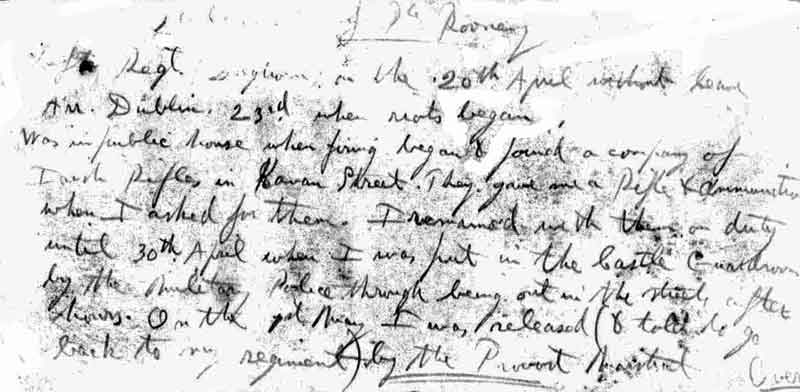 of Pte Rooney
Left Regt. on the 20th April without leave
Arr. Dublin. 23rd when riots began
Was in public house when firing began & joined a company of
Irish Rifles in Street. They gave me a Rifle & ammunition
when I asked for them. I remained with them on duty
until 30th April when I was put in the Castle Guardroom
by the Police through being out in the streets after
hours. On the 1st May I was released (& told to go
back to my regiment) by the Provost Marshal